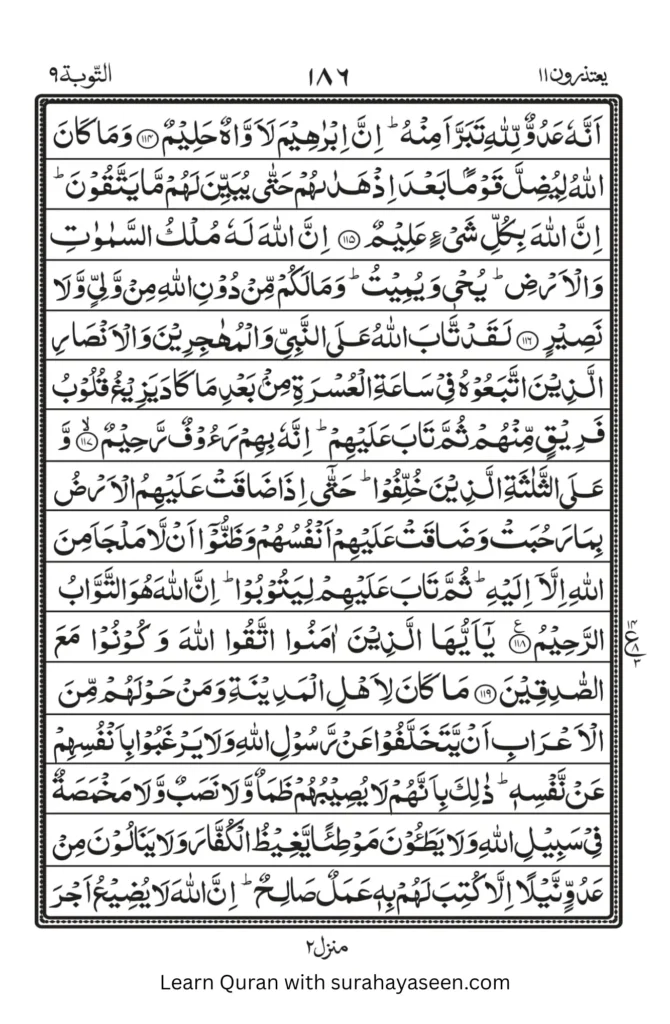 يعتذرون١١ ١٨٦ التّوبة٩
اَنَّهٗ عَدُوٌّ لِّلّٰهِ تَبَرَّاَ مِنْهُ ؕ اِنَّ اِبْرٰهِيْمَ لَاَوَّاهٌ حَلِيْمٌ ۝١١٤ وَمَا كَانَ
اللّٰهُ لِيُضِلَّ قَوْمًۢا بَعْدَ اِذْ هَدٰىهُمْ حَتّٰى يُبَيِّنَ لَهُمْ مَّا يَتَّقُوْنَ ؕ
اِنَّ اللّٰهَ بِكُلِّ شَىْءٍ عَلِيْمٌ ۝١١٥ اِنَّ اللّٰهَ لَهٗ مُلْكُ السَّمٰوٰتِ
وَالْاَرْضِ ؕ يُحْىٖ وَيُمِيْتُ ؕ وَمَا لَكُمْ مِّنْ دُوْنِ اللّٰهِ مِنْ وَّلِىٍّ وَّلَا
نَصِيْرٍ ۝١١٦ لَقَدْ تَّابَ اللّٰهُ عَلَى النَّبِىِّ وَالْمُهٰجِرِيْنَ وَالْاَنْصَارِ
الَّذِيْنَ اتَّبَعُوْهُ فِىْ سَاعَةِ الْعُسْرَةِ مِنْۢ بَعْدِ مَا كَادَ يَزِيْغُ قُلُوْبُ
فَرِيْقٍ مِّنْهُمْ ثُمَّ تَابَ عَلَيْهِمْ ؕ اِنَّهٗ بِهِمْ رَءُوْفٌ رَّحِيْمٌ ۙ۝١١٧ وَّ
عَلَى الثَّلٰثَةِ الَّذِيْنَ خُلِّفُوْا ؕ حَتّٰۤى اِذَا ضَاقَتْ عَلَيْهِمُ الْاَرْضُ
بِمَا رَحُبَتْ وَضَاقَتْ عَلَيْهِمْ اَنْفُسُهُمْ وَظَنُّوْۤا اَنْ لَّا مَلْجَاَ مِنَ
اللّٰهِ اِلَّاۤ اِلَيْهِ ؕ ثُمَّ تَابَ عَلَيْهِمْ لِيَتُوْبُوْا ؕ اِنَّ اللّٰهَ هُوَ التَّوَّابُ
الرَّحِيْمُ ۝١١٨ ع يٰۤاَيُّهَا الَّذِيْنَ اٰمَنُوا اتَّقُوا اللّٰهَ وَكُوْنُوْا مَعَ
١٤ ع ٨ ٣
الصّٰدِقِيْنَ ۝١١٩ مَا كَانَ لِاَهْلِ الْمَدِيْنَةِ وَمَنْ حَوْلَهُمْ مِّنَ
الْاَعْرَابِ اَنْ يَّتَخَلَّفُوْا عَنْ رَّسُوْلِ اللّٰهِ وَلَا يَرْغَبُوْا بِاَنْفُسِهِمْ
عَنْ نَّفْسِهٖ ؕ ذٰلِكَ بِاَنَّهُمْ لَا يُصِيْبُهُمْ ظَمَاٌ وَّلَا نَصَبٌ وَّلَا مَخْمَصَةٌ
فِىْ سَبِيْلِ اللّٰهِ وَلَا يَطَـُٔوْنَ مَوْطِئًا يَّغِيْظُ الْكُفَّارَ وَلَا يَنَالُوْنَ مِنْ
عَدُوٍّ نَّيْلًا اِلَّا كُتِبَ لَهُمْ بِهٖ عَمَلٌ صَالِحٌ ؕ اِنَّ اللّٰهَ لَا يُضِيْعُ اَجْرَ
منزل٢
Learn Quran with surahayaseen.com